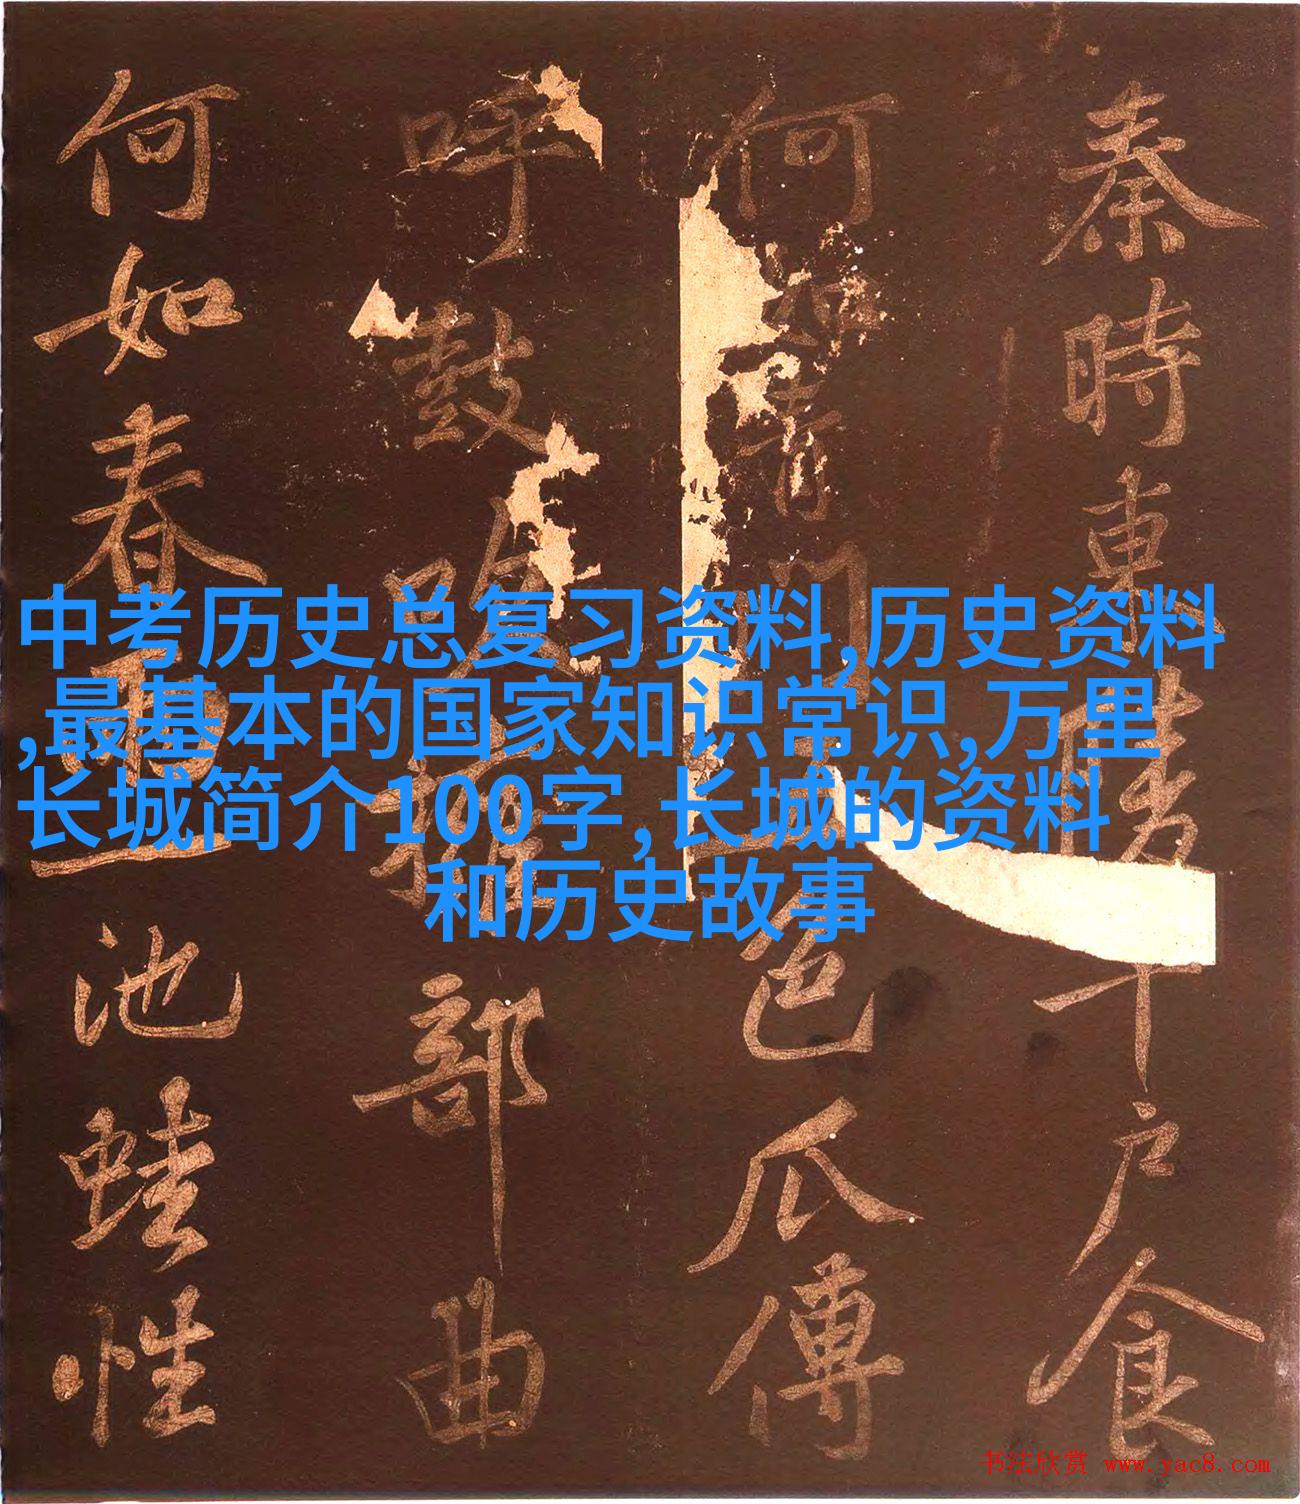 秦時東陵千戶食
何如青門一色瓜傳
呼鼓吹擁部曲
何如春雨池蛙性
中考历史总复习资料,历史资料
,最基本的国家知识常识,万里
长城简介100字,长城的资料
和历史故事
书法欣赏 www.yac8.com